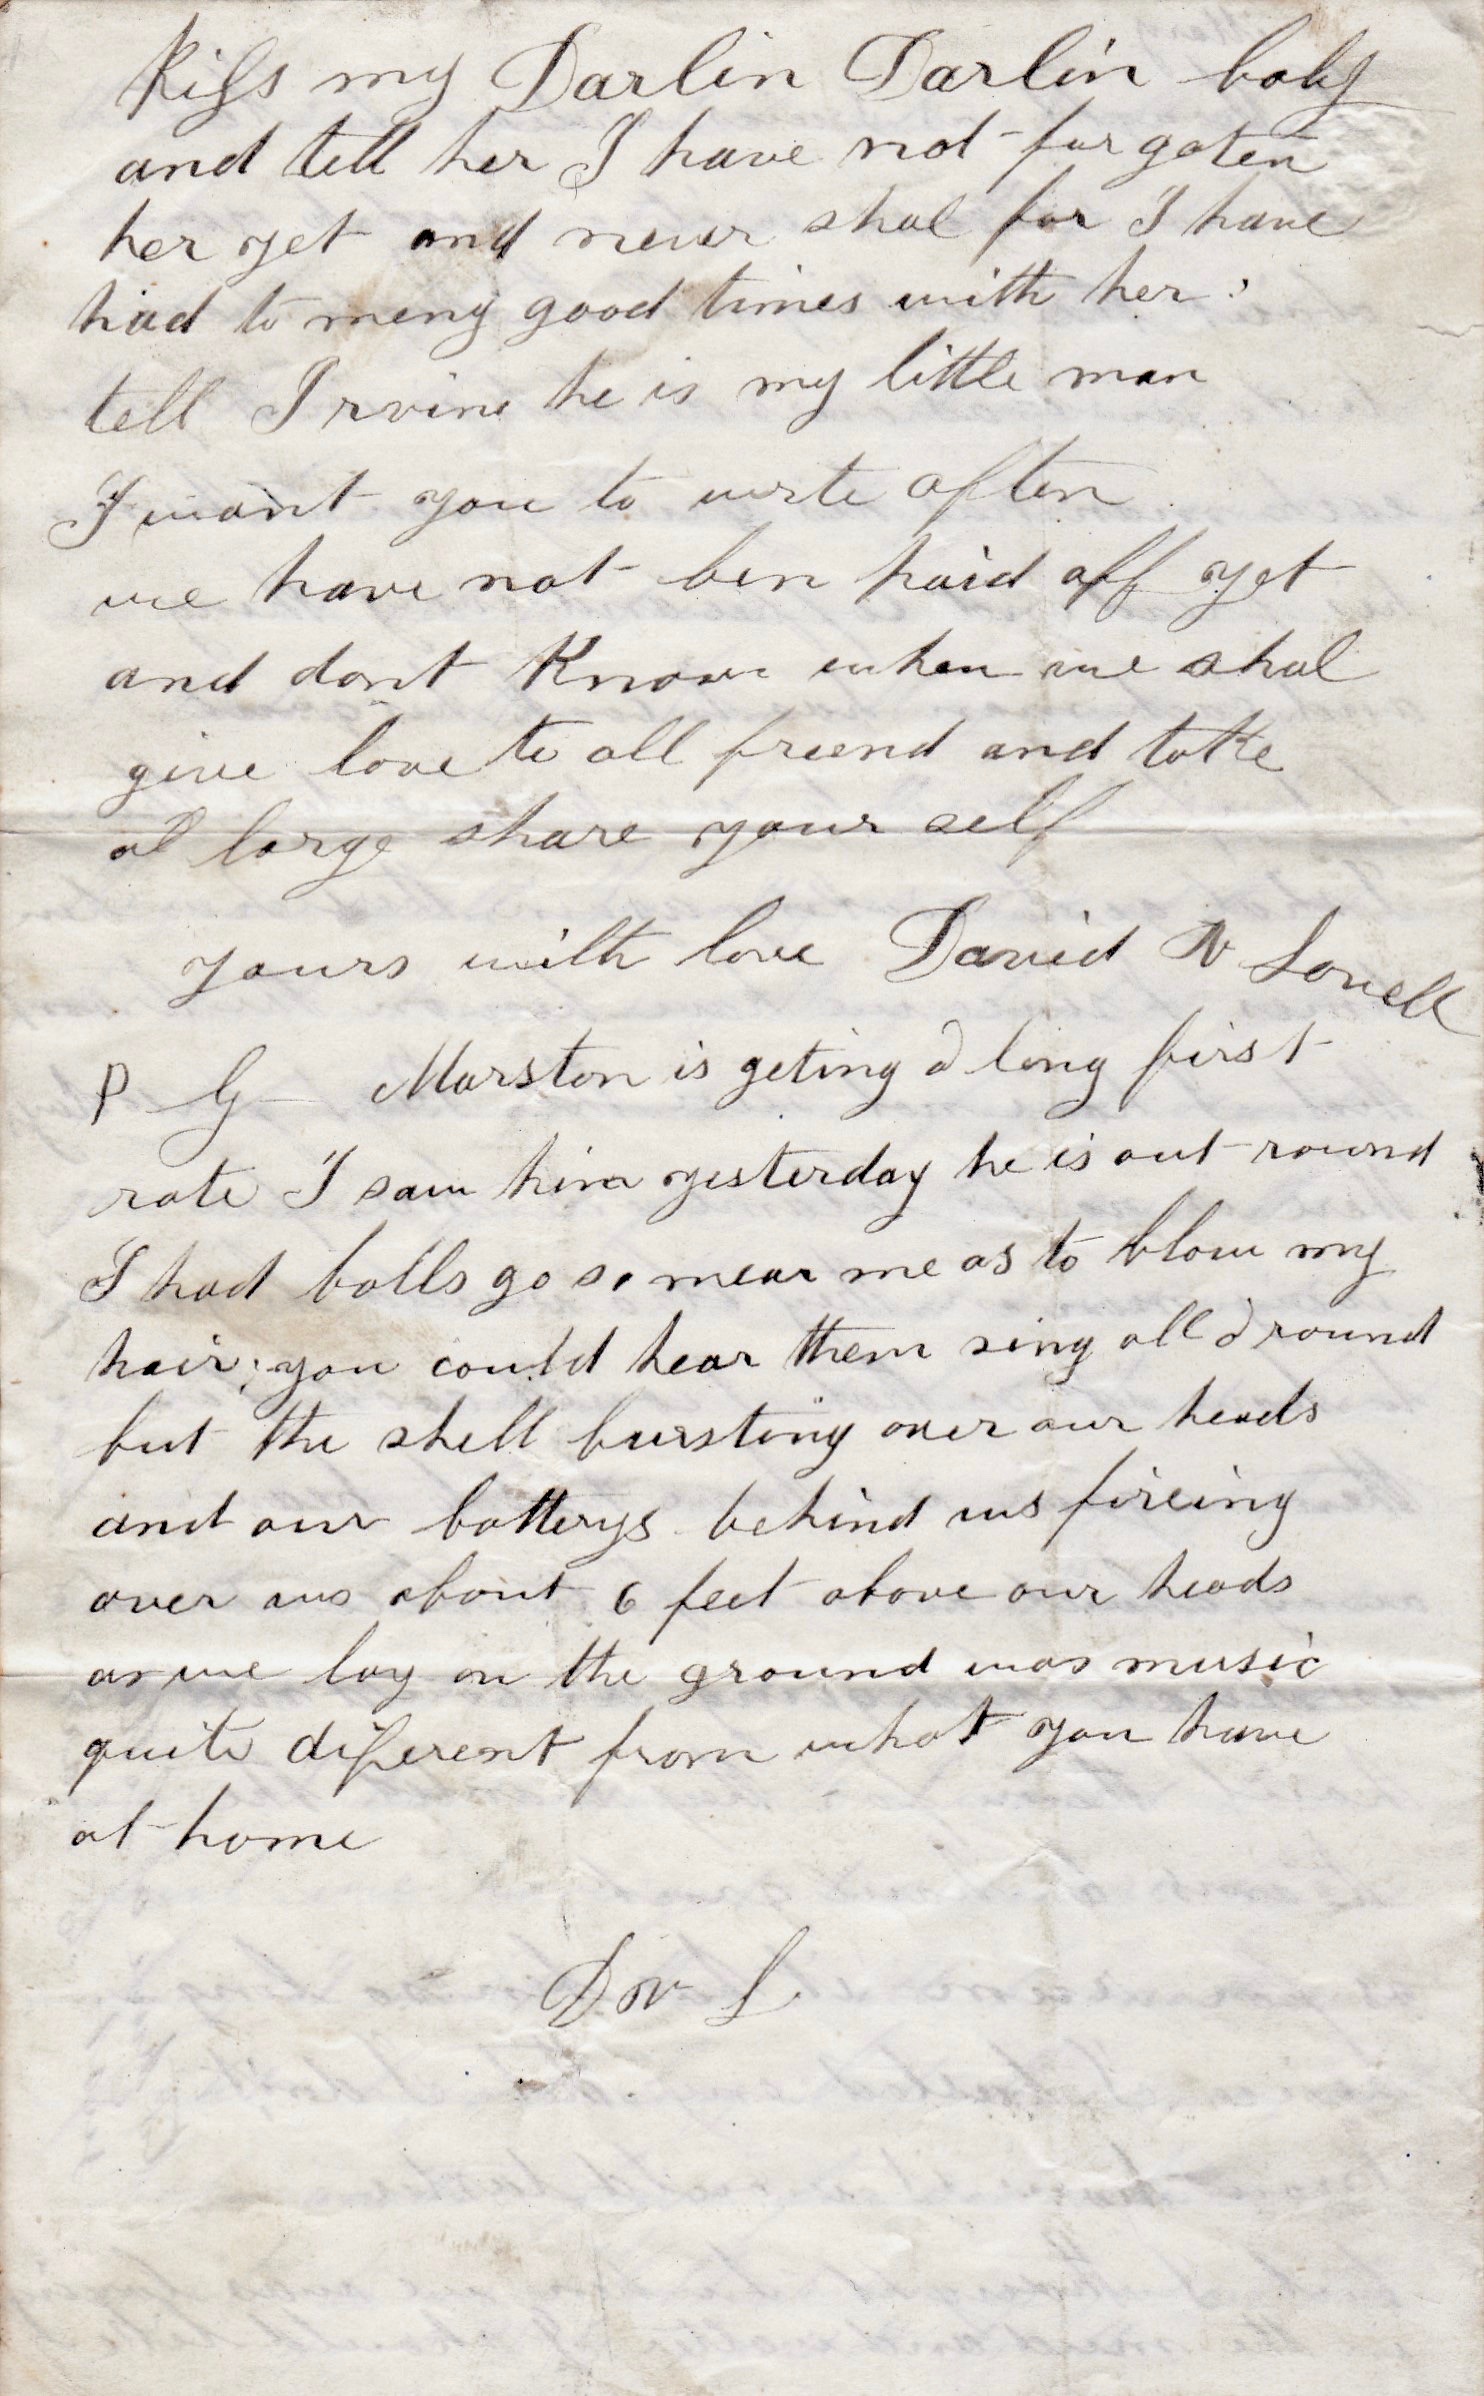 Kiss my Darlin Darlin baby
and tell her I have not forgoten
her yet and never shal for I have
had to meny good times with her :
tell Irvine he is my little man
I want you to write often
we have not ben paid off yet
and dont Know when we shal
give love to all freend and take
a large share your self
yours with love David N Lovell
P G Marston is geting a long first
rate I saw him yesterday he is out round
I had balls go so near me as to blow my
hair; you could hear them sing all around
but the shell bursting over our heads
and our batterys behind us fireing
over us about 6 feet above our heads
as we lay on the ground was music
quite diferent from what you have
at home
D N L